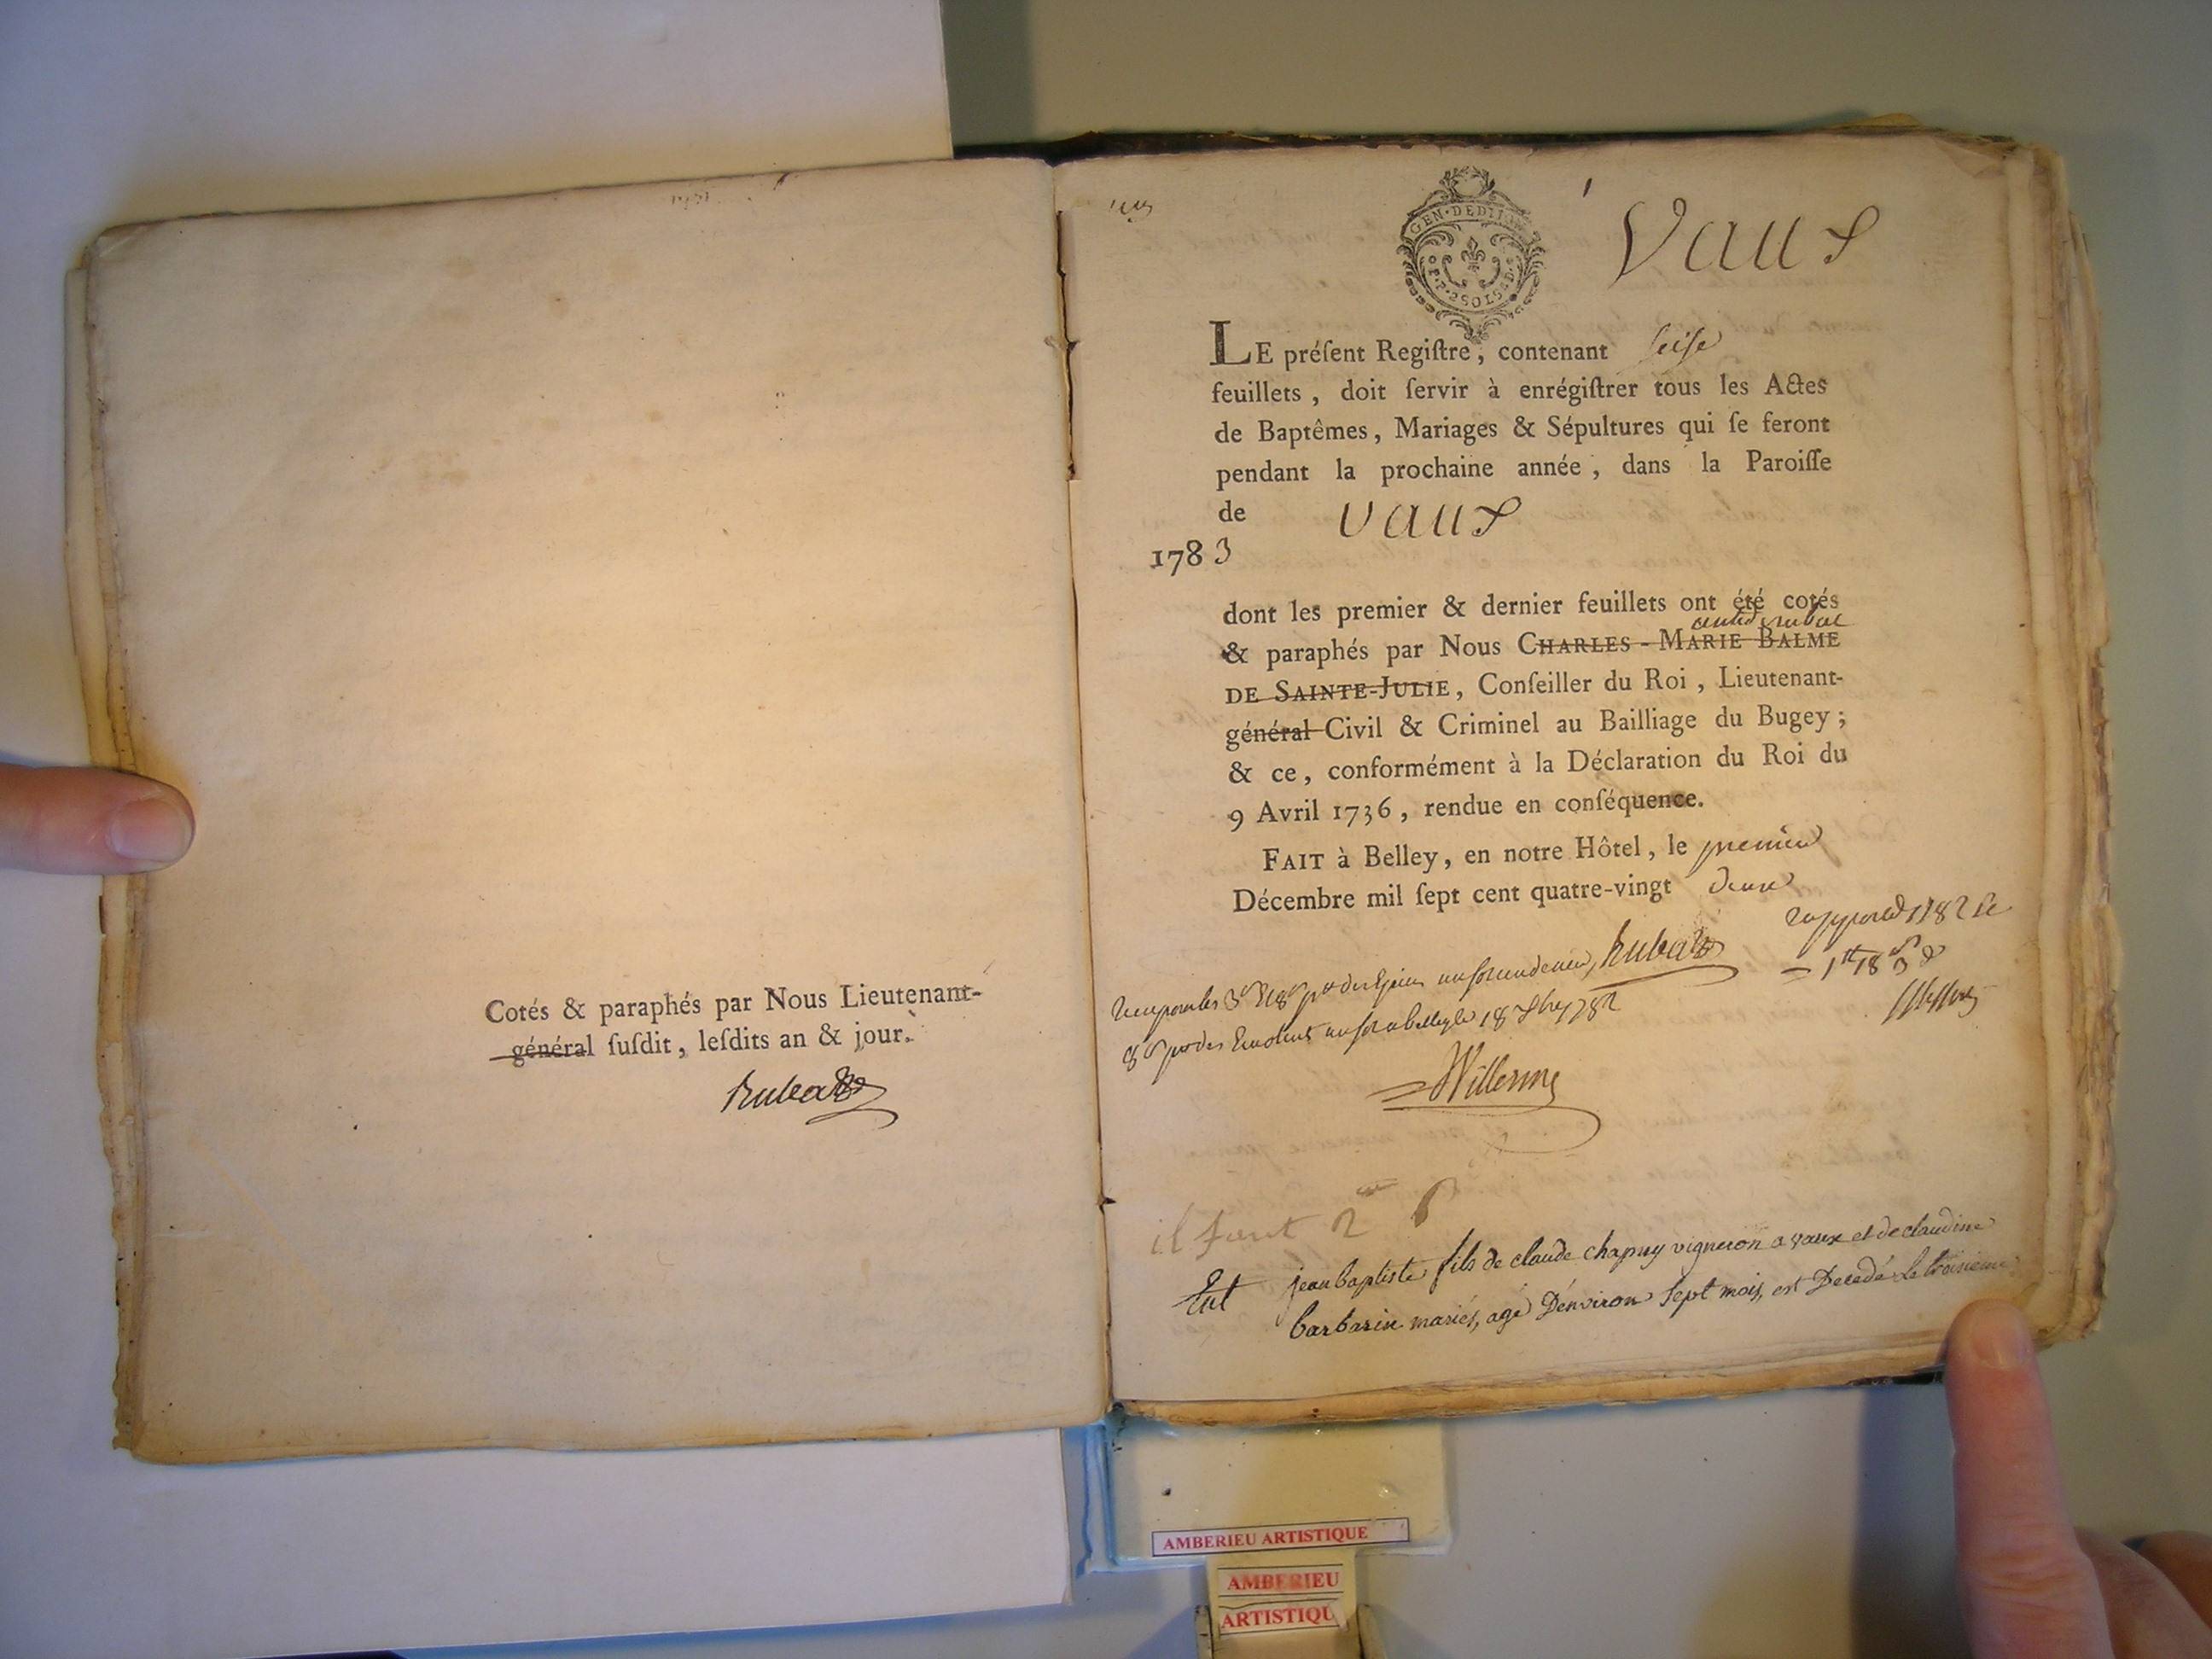 Cotés & paraphés par Nous Lieutenant-
général ſuſdit, leſdits an & jour.
GEN·DEDIION
2SOLS
Vaux
LE préſent Regiſtre, contenant seise
feuillets, doit ſervir à enrégiſtrer tous les Actes
de Baptêmes, Mariages & Sépultures qui ſe feront
pendant la prochaine année, dans la Paroiſſe
de vaux
1783
dont les premier & dernier feuillets ont été cotés
& paraphés par Nous CHARLES-MARIE BALME
DE SAINTE-JULIE, Conſeiller du Roi, Lieutenant-
général Civil & Criminel au Bailliage du Bugey;
& ce, conformément à la Déclaration du Roi du
9 Avril 1736, rendue en conſéquence.
FAIT à Belley, en notre Hôtel, le premier
Décembre mil ſept cent quatre-vingt deux
Willerme
il faut 2
jean baptiste fils de claude chapuy vigneron a vaux et de claudine
barbarin mariés, agé D'environ Sept mois, est Decedé Le troisieme
AMBERIEU ARTISTIQUE
AMBERIEU
ARTISTIQU